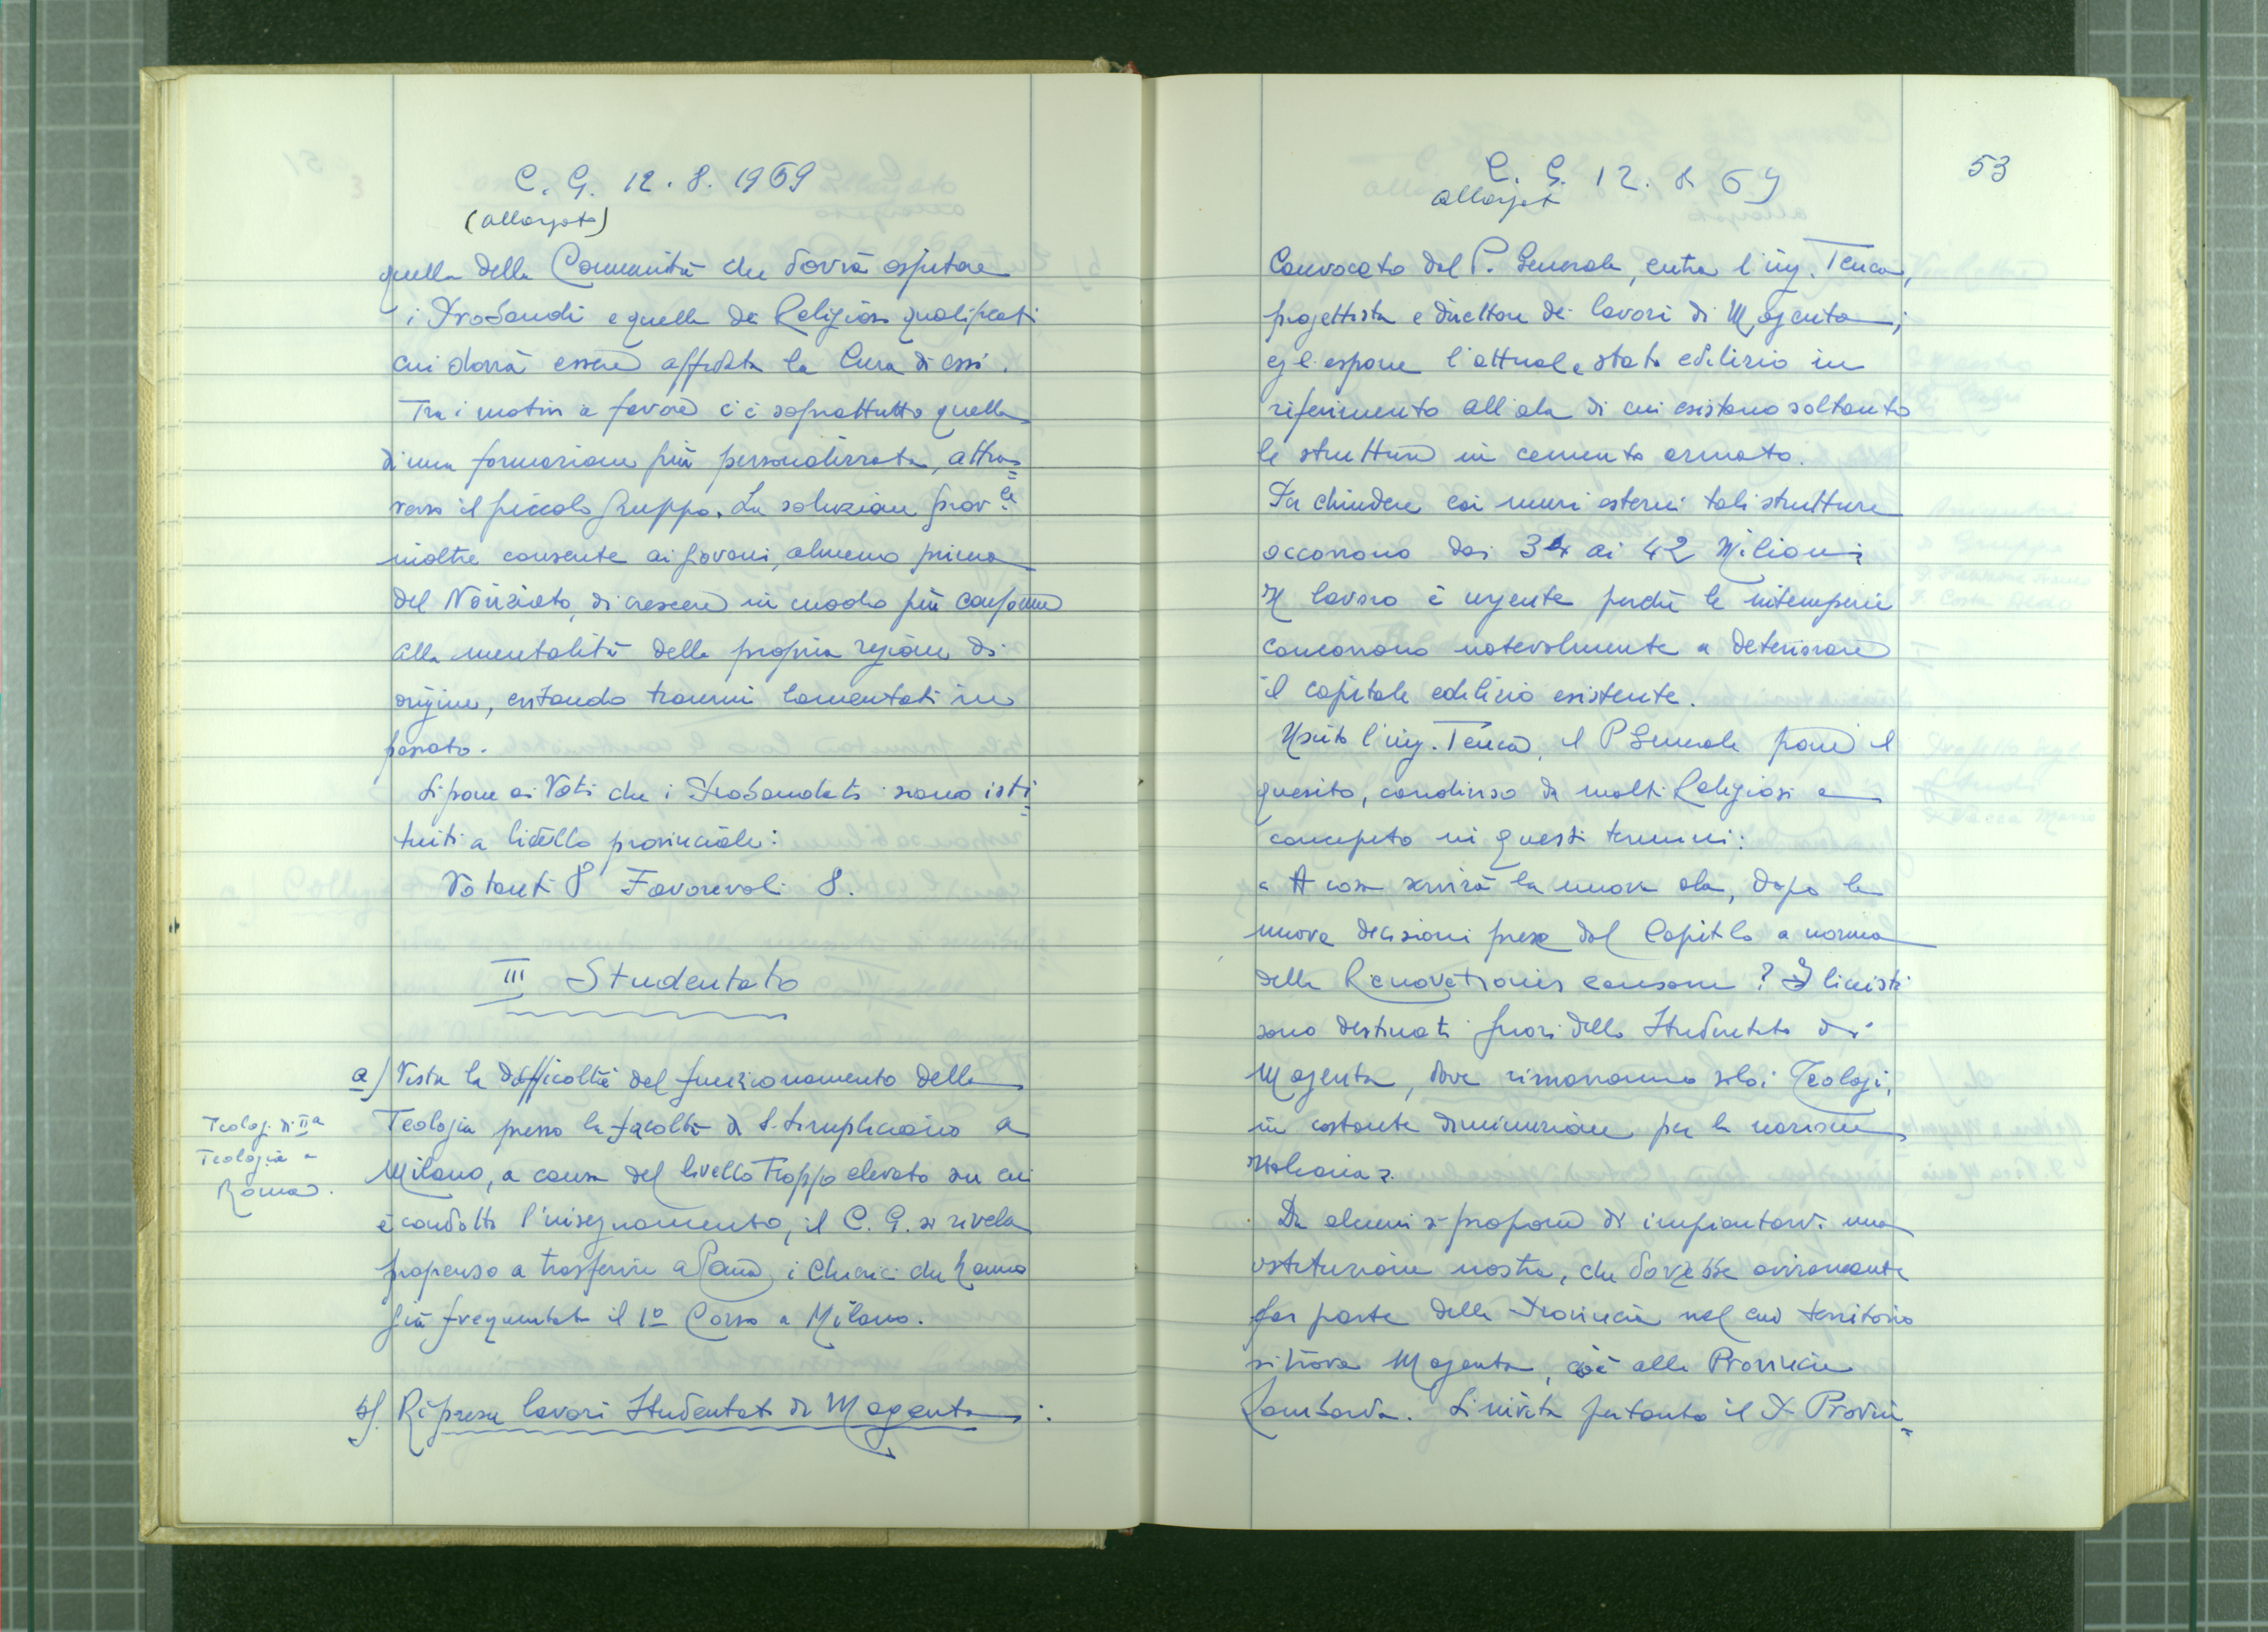 C. G. 12. 8. 1969
(allargato)
quella della Comunità che dovrà ospitare
i Probandi e quella dei Religiosi qualificati
cui dovrà essere affidata la cura di essi.
Tra i motivi a favore c'è soprattutto quello
di una formazione più personalizzata, attra=
verso il piccolo gruppo. La soluzione prov.le
inoltre consente ai giovani, almeno prima
del Noviziato, di crescere in modo più conforme
alla mentalità della propria regione di
origine, evitando traumi lamentati in
passato.
Si pone ai Voti che i Probandati siano isti=
tuiti a livello provinciale:
Votanti 8 Favorevoli 8.
III Studentato
a) Vista la difficoltà del funzionamento della
Teologia presso la facoltà di S. Simpliciano a
Milano, a causa del livello troppo elevato su cui
è condotto l'insegnamento, il C. G. si rivela
propenso a trasferire a Roma, i Chierici che hanno
già frequentato il 1º Corso a Milano.
Teologi di IIa
Teologia a
Roma.
b). Ripresa lavori Studentato di Magenta:
53
C. G. 12. 8 69
allargato
Convocato dal P. Generale, entra l'ing. Tenca,
progettista e direttore dei lavori di Magenta;
egli espone l'attuale stato edilizio in
riferimento all'ala di cui esistono soltanto
le strutture in cemento armato.
Per chiudere coi muri esterni tali strutture
occorrono dai 34 ai 42 Milioni
Il lavoro è urgente perché le intemperie
concorrono notevolmente a deteriorare
il capitale edilizio esistente.
Uscito l'ing. Tenca, il P Generale pone il
quesito, condiviso da molti Religiosi e
concepito in questi termini:
« A cosa servirà la nuova ala, dopo le
nuove decisioni prese dal Capitolo a norma
della Renovationis causam? I liceisti
sono destinati fuori dello Studentato di
Magenta, dove rimarranno solo i Teologi,
in costante diminuzione per la nazione
Italiana ».
Da alcuni si propone di impiantarvi una
istituzione nostra, che dovrebbe ovviamente
far parte della Provincia nel cui territorio
si trova Magenta, cioè alla Provincia
Lombarda. Si invita pertanto il P. Provin=